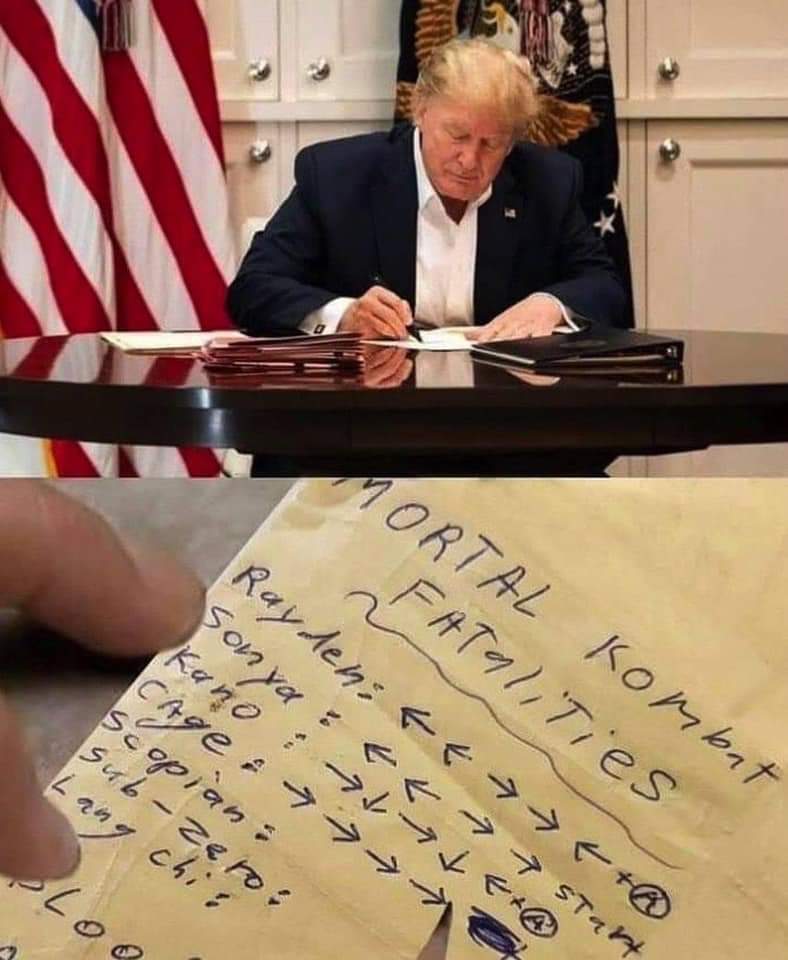 MORTAL KOMbAt
FATaLiTies
Rayden: ← ← → → ← + Ⓐ
Sonya : ← ← → → START
Kano : → ↓ → ↓ ← + Ⓐ
CAge : → → → →
Scopian:
Sub-Zero:
Lang chi:
BLOO